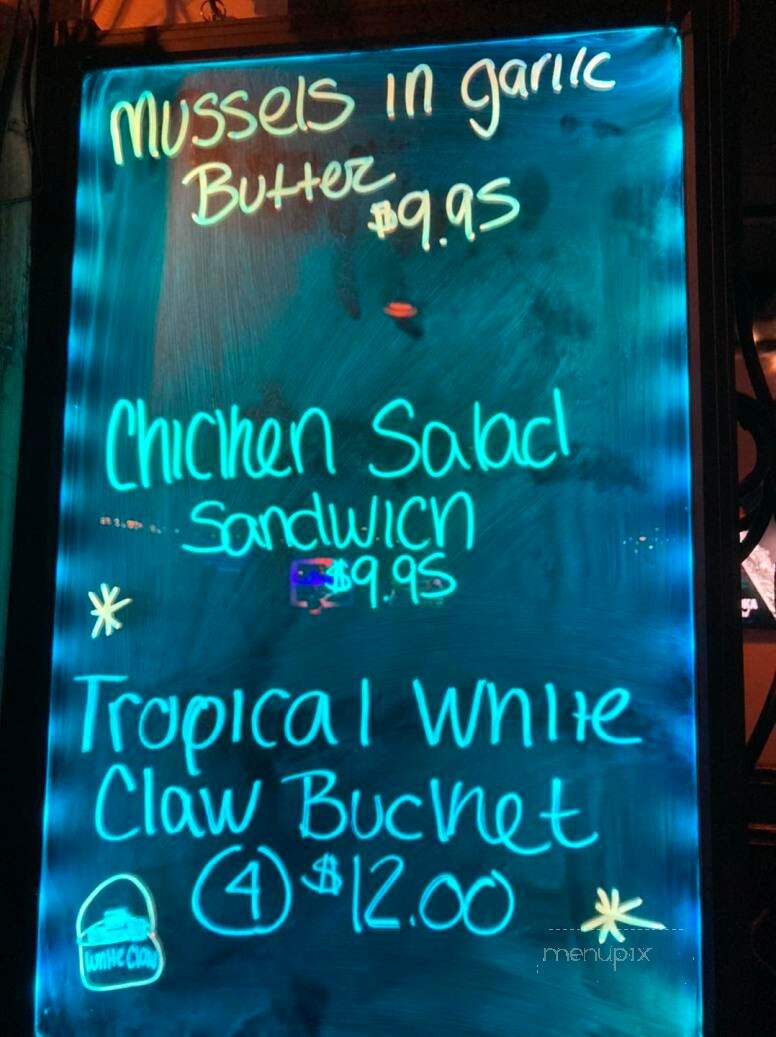 Mussels in garlic
Butter
$9.95
Chicken Salad
Sandwich
$9.95
Tropical White
Claw Bucket
4 $12.00
White Claw
menupix